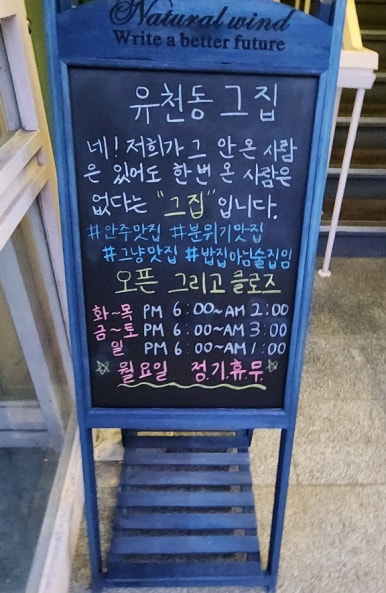 Natural wind
Write a better future
유천동 그집
네! 저희가 그 안 온 사람
은 있어도 한번 온 사람은
없다는 "그집"입니다.
#안주맛집 #분위기맛집
#그냥맛집 #밥집아님술집임
오픈 그리고 클로즈
화~목 PM 6:00~AM 2:00
금~토 PM 6:00~AM 3:00
일 PM 6:00~AM 1:00
☆ 월요일 정.기.휴.무. ☆